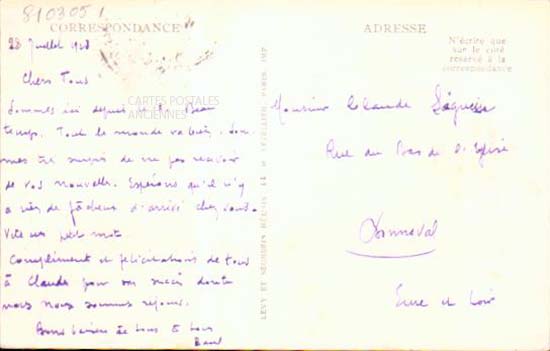 810305 1
CORRESPONDANCE
28 Juillet
Chers Tous
Sommes ici depuis le Beau
temps. Tout le monde va bien. Som
mes très surpris de ne pas recevoir
de vos nouvelles. Espérons qu'il n'y
a rien de fâcheux d'arrivé chez vous.
Vite un petit mot.
Compliments et félicitations de tous
à Claude pour son succès dont
nous nous sommes réjouis.
Bons baisers de tous à tous
CARTES POSTALES
ANCIENNES
LEVY ET NEURDEIN RÉUNIS 44 PARIS IMP
ADRESSE
N'écrire que
sur le côté
réservé à la
correspondance
Monsieur Claude
Rue du Bas de l'Eglise
Bonneval
Eure et Loir